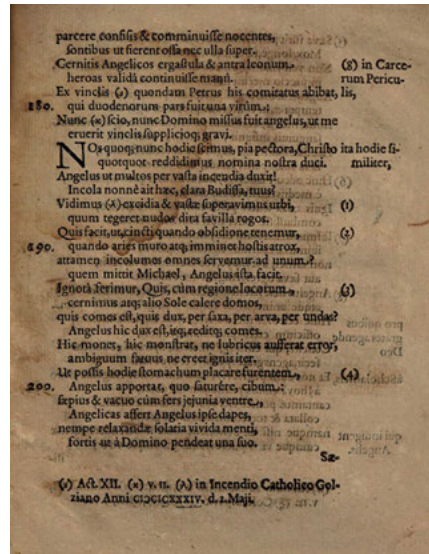 parcere confisis & comminuisse nocentes,
sontibus ut fierent ossa nec ulla super.
Cernitis Angelicos ergastula & antra leonum (8) in Carce-
heroas validâ continuisse manû. rum Pericu-
Ex vinclis (ι) quondam Petrus his comitatus abibat, lis,
280. qui duodenorum pars fuit una virûm.
Nunc (κ) scio, nunc Domino missus fuit angelus, ut me
eruerit vinclis supplicioq; gravi.
NOs quoq; nunc hodie scimus, pia pectora, Christo ita hodie si-
quotquot reddidimus nomina nostra duci. militer,
Angelus ut multos per vasta incendia duxit!
Incola nonnè ait hæc, clara Budissa, tuus?
Vidimus (λ) excidia & vastæ superavimus urbi, (1)
quum tegeret nudos dira favilla rogos.
Quis facit, ut, cincti quando obsidione tenemur, (2)
290. quando aries muro atq; imminet hostis atrox,
attamen incolumes omnes servemur ad unum?
quem mittit Michael, Angelus ista facit.
Ignotâ ferimur, Quis, cùm regione locorum, (3)
cernimus atq; alio Sole calere domos,
quis comes est, quis dux, per saxa, per arva, per undas?
Angelus hic dux est, itq; reditq; comes.
Hic monet, hic monstrat, ne lubricus auferat error,
ambiguum fatuus ne creet ignis iter.
Ut possis hodie stomachum placare furentem, (4)
200. Angelus apportat, quo saturêre, cibum:
sæpius & vacuo cùm fers jejunia ventre,
Angelicas affert Angelus ipse dapes,
nempe relaxandæ solatia vivida menti,
fortis ut à Domino pendeat una suo.
Sæ-
(ι) Act. XII. (κ) v. 11. (λ) in Incendio Catholico Gol-
ziano Anni CIƆIƆCXXXIV. d. 2. Maji.